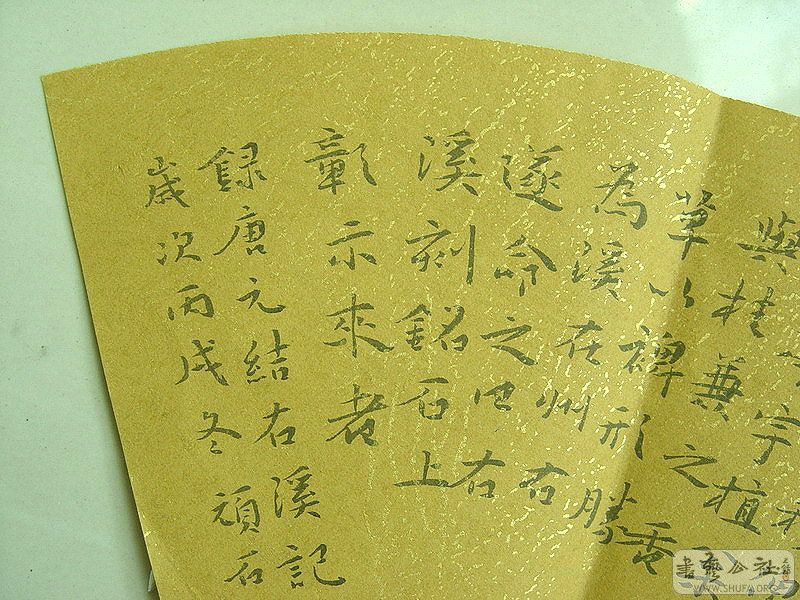 宇植
與桂兼之香
草以裨形勝
為溪在州右
遂命之曰右
溪刻銘石上
彰示來者
錄唐元結右溪記
歲次丙戌冬頑石
書藝公社
WWW.SHUFA.ORG